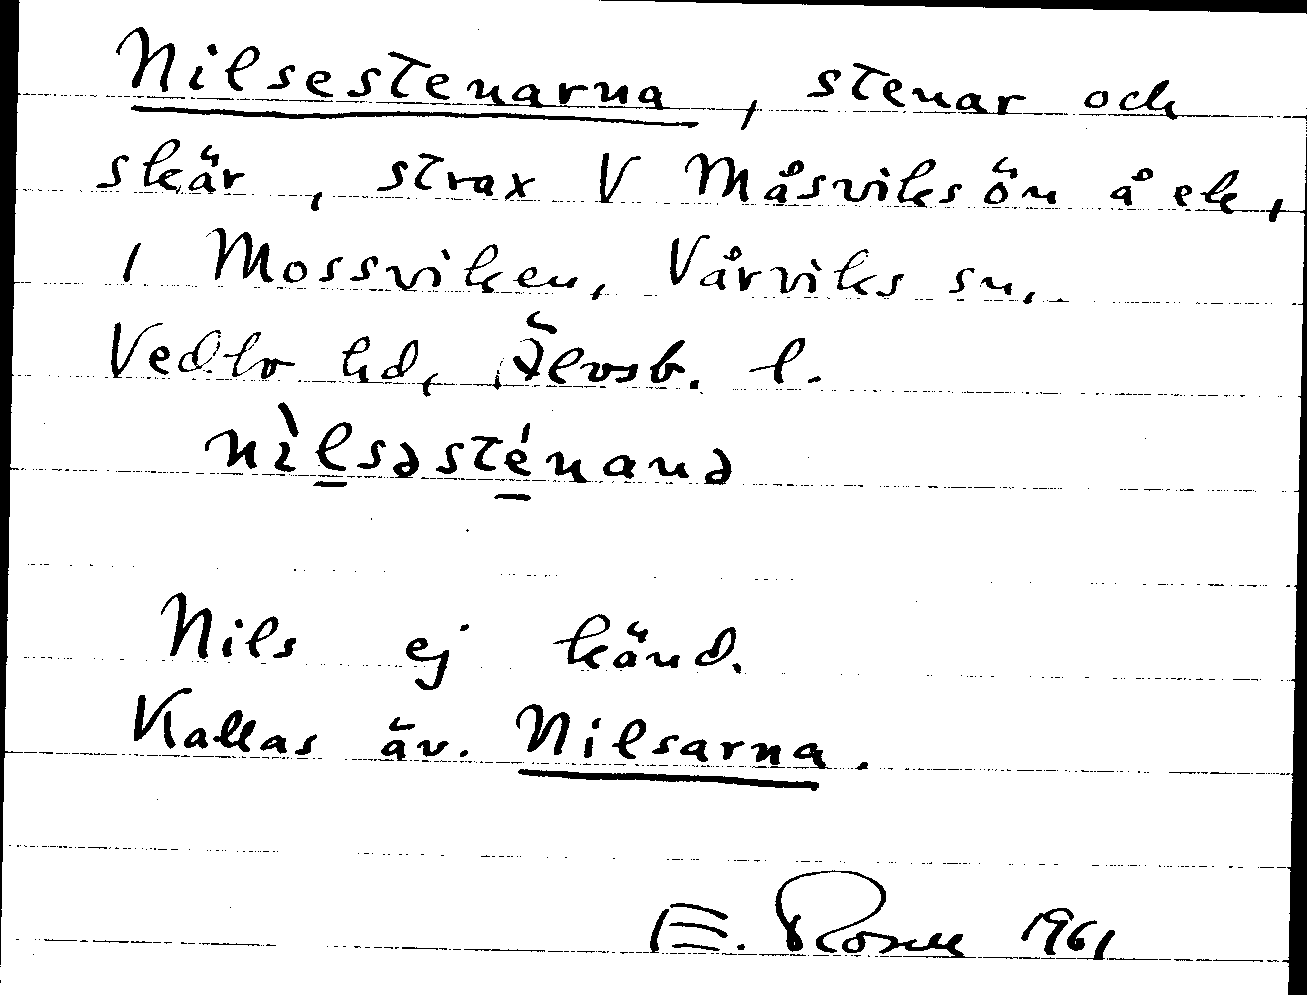 Nilsestenarna, stenar och
skär, strax V Måsviksön å ek,
i Mossviken, Vårviks sn,
Vedbo hd, Älvsb. l.
nìlsəsténanə
Nils ej känd.
Kallas äv. Nilsarna.
E. Rosell 1961